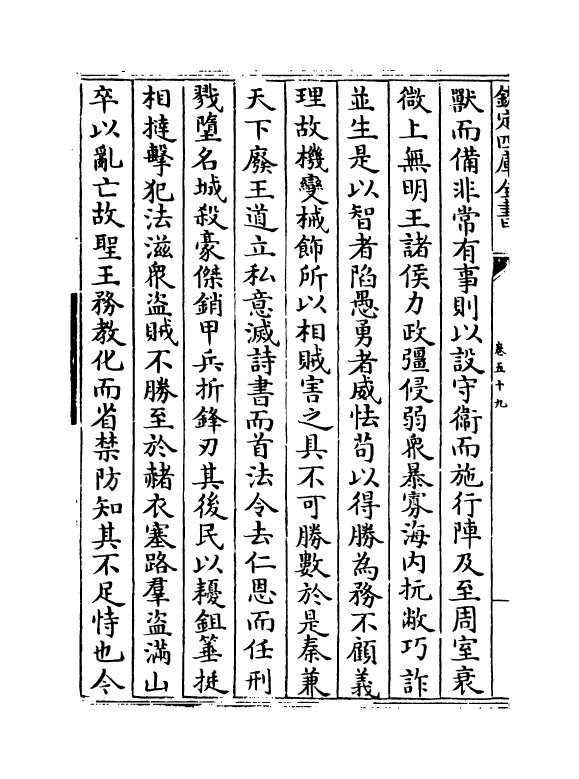 欽定四庫全書
卷五十九
獸而備非常有事則以設守衞而施行陣及至周室衰
微上無明王諸侯力政彊侵弱衆暴寡海内抏敝巧詐
並生是以智者陷愚勇者威怯苟以得勝為務不顧義
理故機變械飾所以相賊害之具不可勝數於是秦兼
天下廢王道立私意滅詩書而首法令去仁恩而任刑
戮墮名城殺豪傑銷甲兵折鋒刃其後民以耰鉏箠挺
相撻擊犯法滋衆盗賊不勝至於赭衣塞路羣盗滿山
卒以亂亡故聖王務教化而省禁防知其不足恃也今